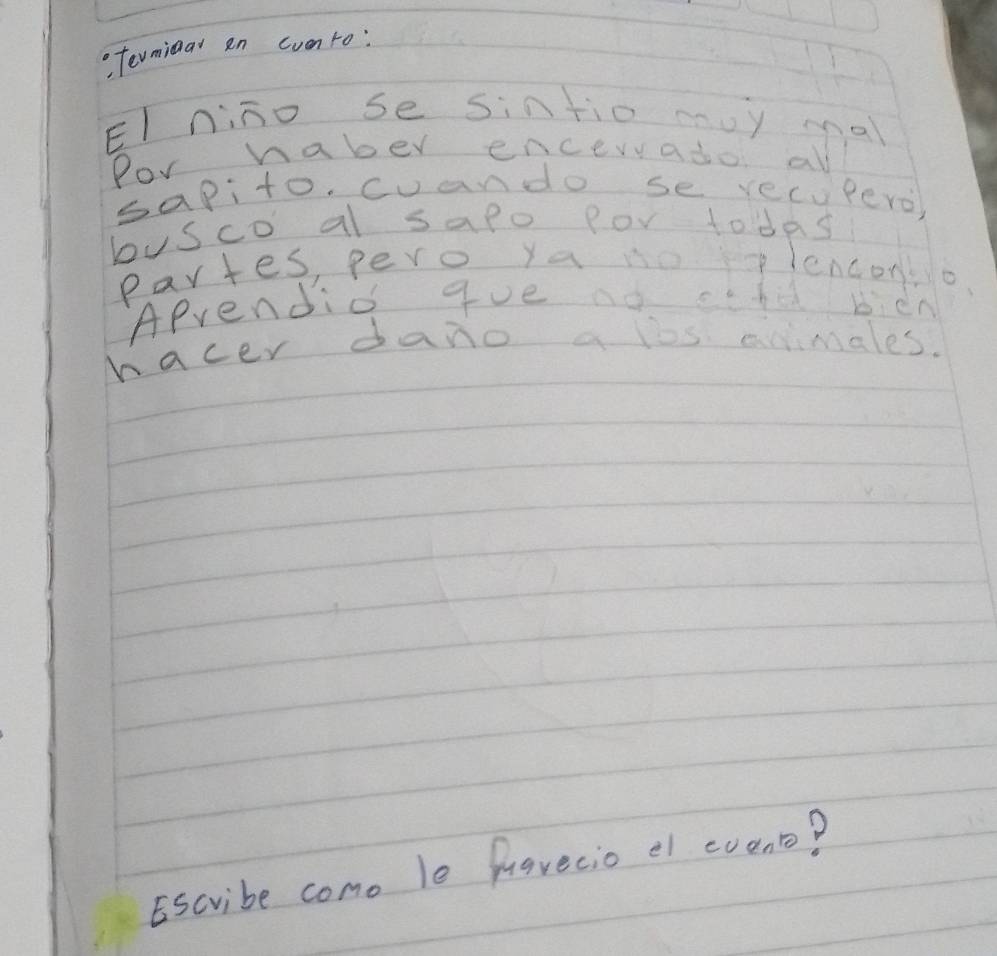 Terminar en cuento:
El niño se sintio muy mal
Por haber encerrado al
sapito. cuando se recuperó,
buscó al sapo por todas
partes, pero ya no lo encontro.
Aprendió que no está bien
hacer daño a los animales.
Escribe como le parecio el cuento?